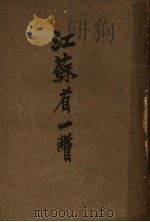 江蘇省一瞥